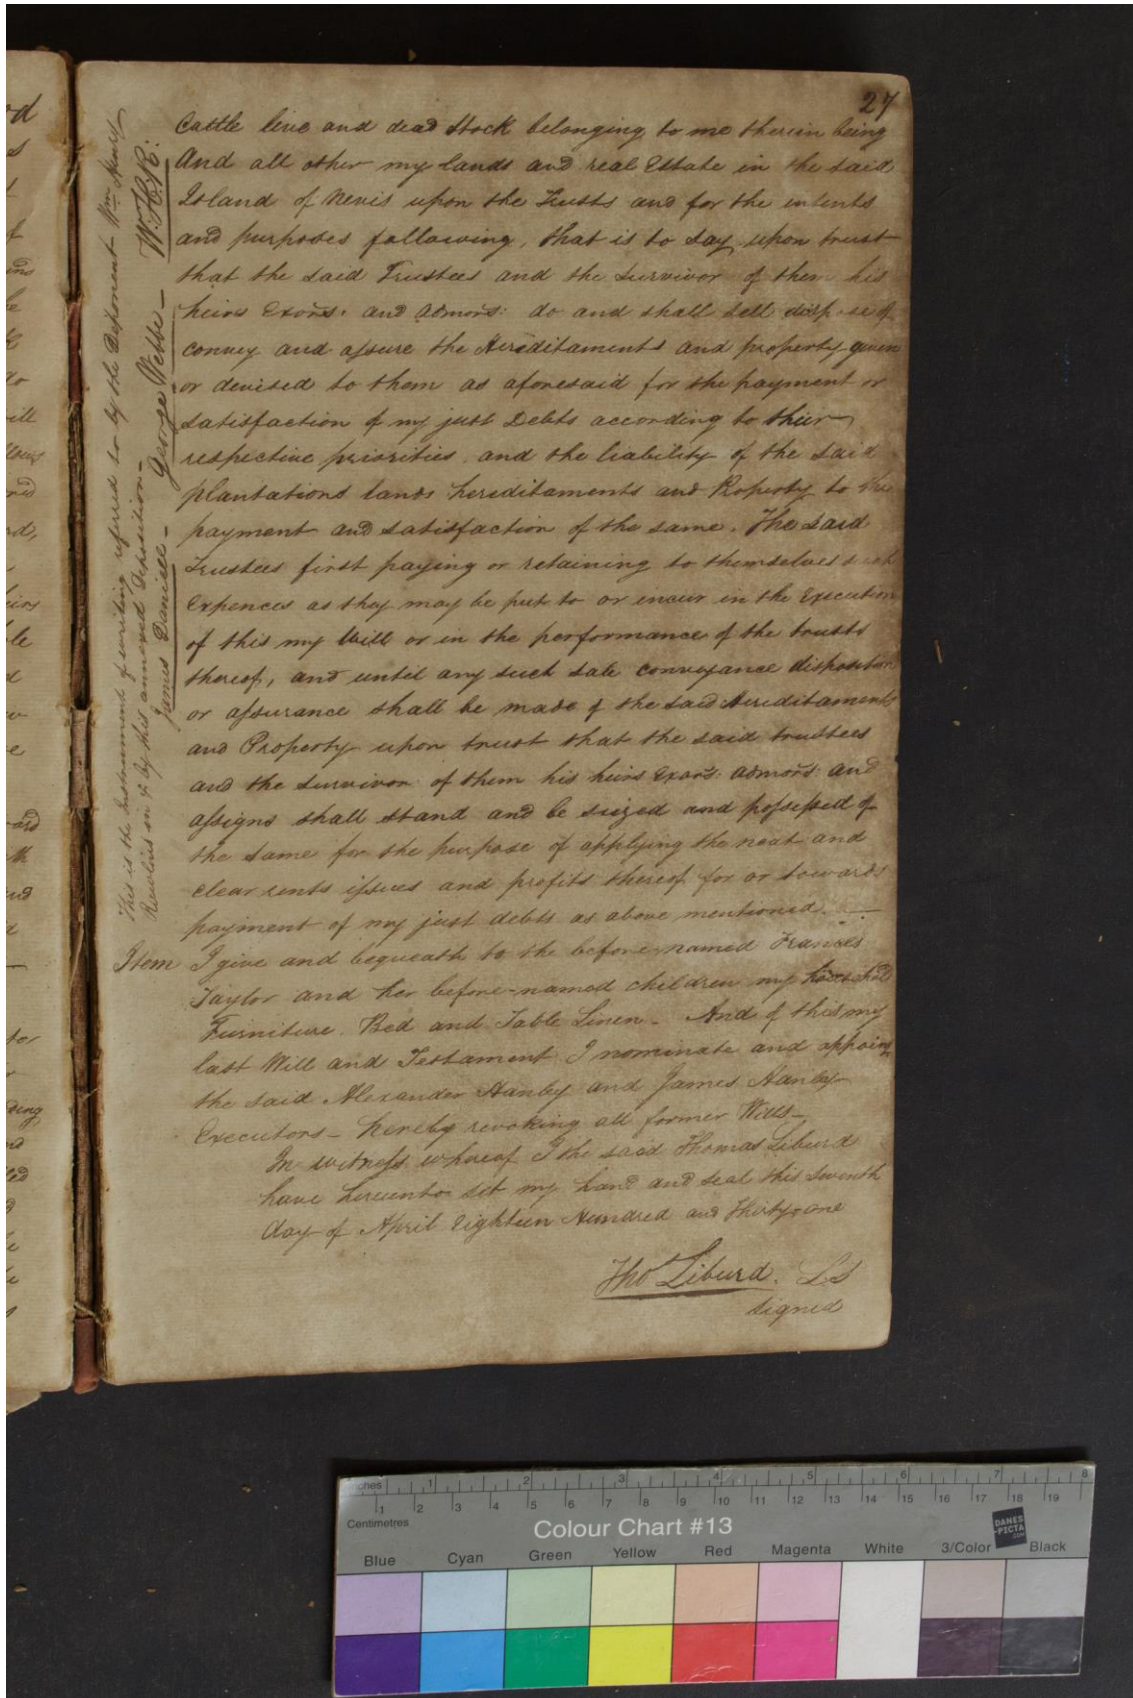 27
Cattle live and dead Stock belonging to me therein being
And all other my lands and real Estate in the said
Island of Nevis upon the Trusts and for the intents
and purposes following, that is to say upon trust
that the said Trustees and the Survivor of them his
heirs Exors. and Admors: do and shall sell dispose of
convey and assure the Hereditaments and property given
or devised to them as aforesaid for the payment or
satisfaction of my just Debts according to their
respective priorities and the liability of the said
plantations lands hereditaments and Property to the
payment and satisfaction of the same. The said
Trustees first paying or retaining to themselves such
Expences as they may be put to or incur in the Execution
of this my Will or in the performance of the trusts
thereof, and until any such sale conveyance disposition
or assurance shall be made of the said Hereditaments
and Property upon trust that the said trustees
and the Survivor of them his heirs Exors: admors: and
assigns shall stand and be seized and possessed of
the same for the purpose of applying the neat and
clear rents issues and profits thereof for or towards
payment of my just debts as above mentioned.
Item I give and bequeath to the before named Frances
Taylor and her before-named children my household
Furniture Bed and Table Linen - And of this my
last Will and Testament I nominate and appoint
the said Alexander Hanby and James Hanby
Executors - hereby revoking all former Wills -
In witness whereof I the said Thomas Liburd
have hereunto set my hand and seal this Seventh
day of April Eighteen Hundred and Thirty one
Tho Liburd. LS
signed
This is the Instrument of writing referred to by the Deponent Wm Henry
Rawlins in & by this annexed Deposition -
James Daniell - George Webbe - W.H.R:
Inches 1 2 3 4 5 6 7 8
1 2 3 4 5 6 7 8 9 10 11 12 13 14 15 16 17 18 19
Centimetres
Colour Chart #13
DANES-PICTA.COM
Blue Cyan Green Yellow Red Magenta White 3/Color Black